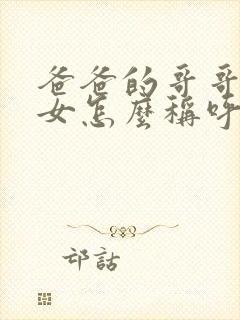 爸爸的哥哥
女怎麼稱呼
邙話